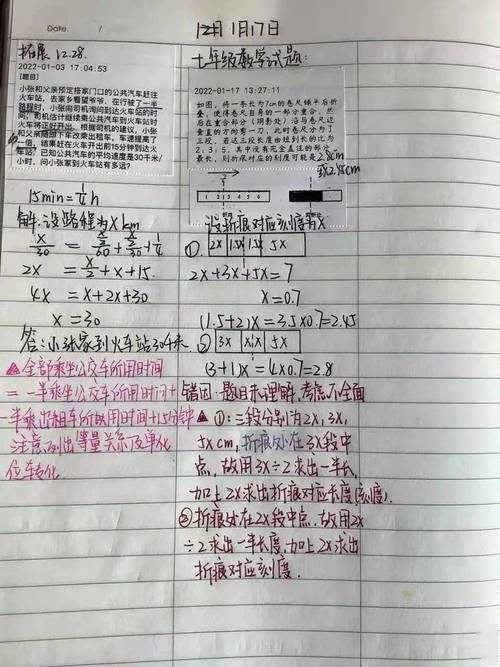 Date. /
12月 1月17日
拓展 12.28.
2022-01-03 17:04:53
[题目]
小张和父亲预定搭家门口的公共汽车赶往
火车站，去家乡看望爷爷，在行驶了一半
路程时，小张向司机询问到达火车站的时
间，司机估计继续乘公共汽车到火车站时
火车将正好开出。根据司机的建议，小张
和父亲随即下车改乘出租车，车速提高了
一倍，结果赶在火车开出前15分钟到达火
车站。已知公共汽车的平均速度是30千米/
小时，问小张家到火车站有多远？
15min = 1/4 h
解：设路程为x km
x/30 = x/2/60 + x/2/30 + 1/4
2x = x/2 + x + 15
4x = x + 2x + 30
x = 30
答：小张家到火车站30千米.
▲全部乘坐公交车所用时间
= 一半乘坐公交车所用时间 +
一半乘出租车所用时间 + 15分钟
注意列出等量关系及单位
位转化
七年级数学试题：
2022-01-17 13:27:11
如图，将一条长为7cm的卷尺铺平后折
叠，使得卷尺自身的一部分重合，然
后在重合部分（阴影处）沿与卷尺边
垂直的方向剪一刀，此时卷尺分为了
三段，若这三段长度由短到长的比为
2：3：5，其中没有完全盖住的部分
最长，则折痕对应的刻度可能是2.8cm
或2.45cm
1 2 3 4 5 6
设折痕对应刻度为x
①. 2x 1.5x 1.5x 5x
2x+3x+5x=7
x=0.7
(1.5+2)x=3.5x0.7=2.45
② 3x x x 5x
(3+1)x=4x0.7=2.8
错因：题目未理解，考虑不全面
▲①：三段分别为2x, 3x,
5x cm, 折痕处在3x段中
点，故用3x÷2求出一半长,
加上2x求出折痕对应长度(刻度).
②折痕处在2x段中点，故用2x
÷2求出一半长度,加上2x求出
折痕对应刻度.